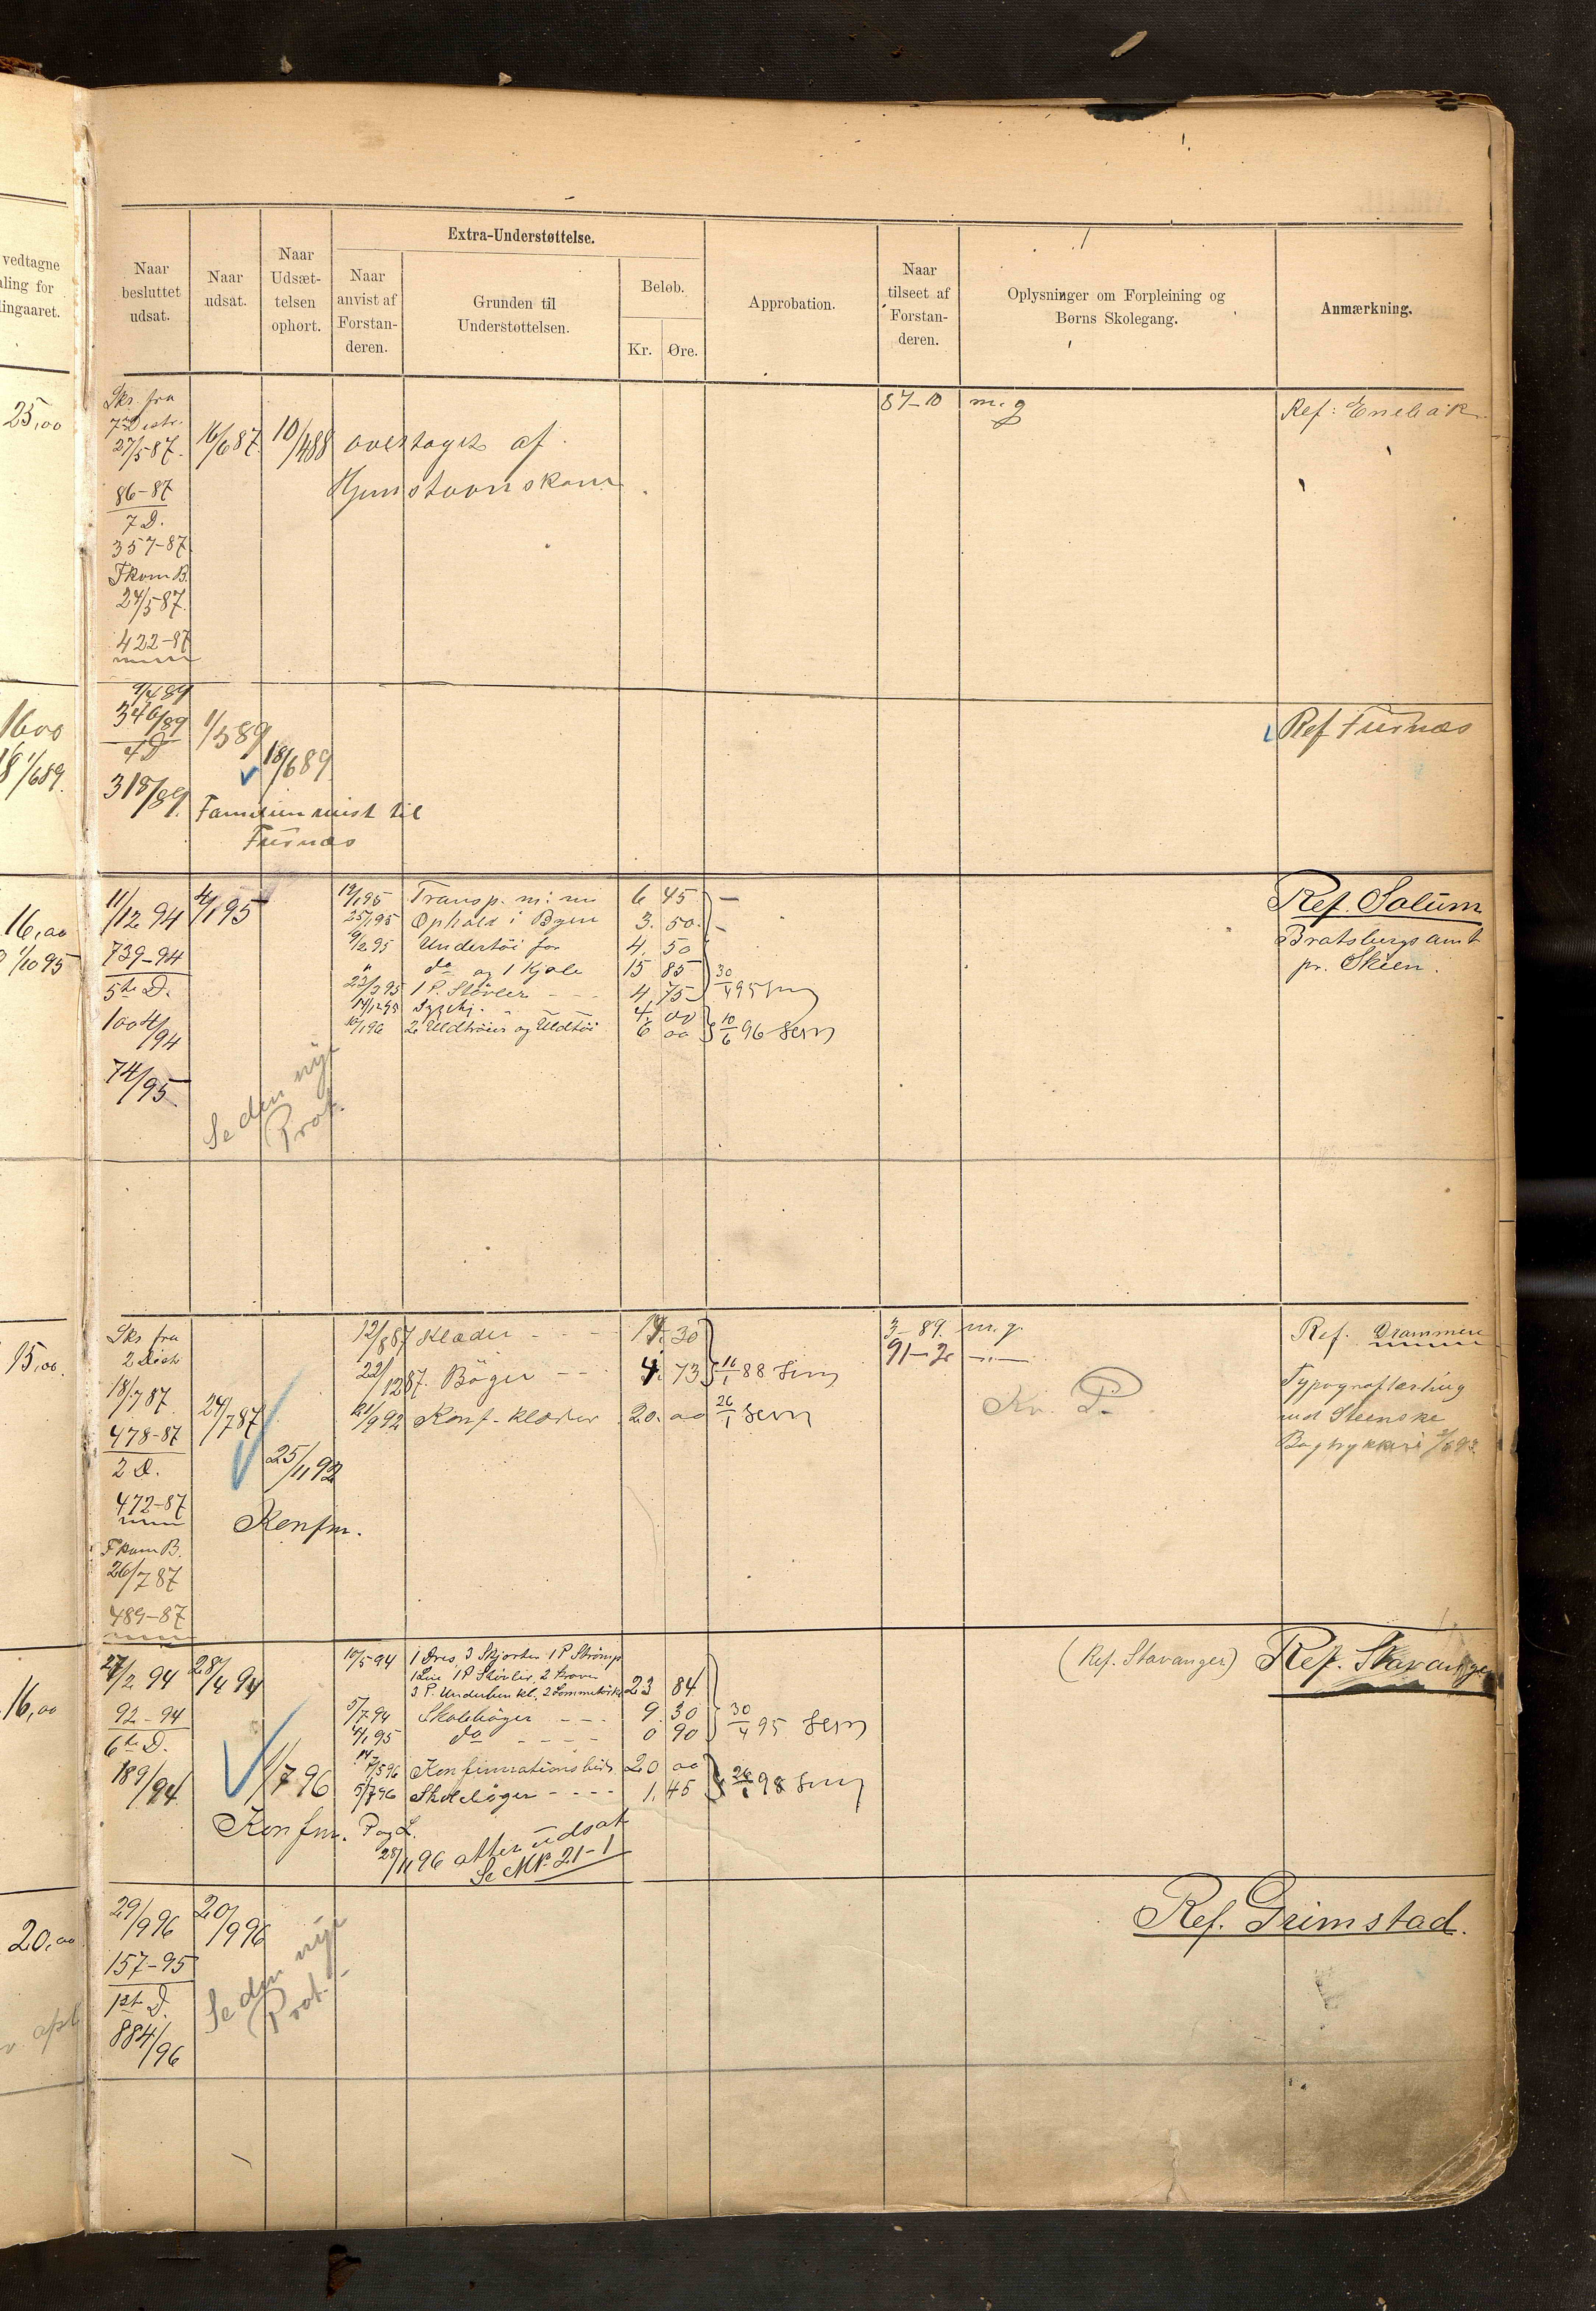 vedtagne
ling for
lingaaret.
Naar
besluttet
udsat.
Naar
udsat.
Naar
Udsæt-
telsen
ophørt.
Extra-Understøttelse.
Naar
anvist af
Forstan-
deren.
Grunden til
Understøttelsen.
Beløb.
Kr.
Øre.
Approbation.
Naar
tilseet af
Forstan-
deren.
Oplysninger om Forpleining og
Børns Skolegang.
Anmærkning.
25,00
Skr. fra
7 Distr.
27/5 87.
86-87
7 D.
357-87
Fkom B.
24/5 87.
422-87
16/6 87.
10/4 88
overtaget af
87-10
m. g
Ref: Enebak
16 00
1/6 89.
9/4 89
346/89
4 D
318/89.
1/5 89
18/6 89
Familien reist til
Furnæs
Ref Furnæs
16,00
1/10 95
11/12 94
739-94
5te D.
1004/94
74/95.
4/1 95
Se den nye
Prot.
12/1 95 Transp. 6 45
25/1 95 Ophold i Byen 3. 50.
9/2 95 Undertøi for 4. 50
" do og 1 Kjole 15 85
23/3 95 1 P. Støvler - - - 4,75
14/12 95 4. 00
10/1 96 2 Uldtrøier og Uldtøi 6 00
30/4 95
10/6 96
Ref. Solum
Bratsbergs amt
pr. Skien.
15,00.
Skr fra
2 Distr
18/7 87
478-87
2 D.
472-87
Fkom B.
26/7 87
489-87
24/7 87
25/11 92
Konfm.
12/8 87 Klæder - - - 30
22/12 87. Bøger - - 4. 73
21/9 92 Konf. klæder 20. 00
88
3-89. m. g.
91-2
Kv. P.
Ref. Drammen
Typograflærling
ved Steenske
Bogtrykkeri
16,00
27/2 94
92-94
6te D.
189/94
28/4 94
1/7 96
Konfm.
10/5 94 1 Dres, 3 Skjorter 1 P Strømp
1 Lue 1 P Støvler, 2
3 P. Underbenkl., 2 Lommetørkl 23 84
5/7 94 Skolebøger - - - 9. 30
4/1 95 do - - - - 0 90
30/4 95
Konfirmationsbidr 20 00
5/7 96 Skolebøger - - - - 1. 45
98
P og L.
28/11 96 atter udsat
Se No 21-1
(Ref. Stavanger)
Ref. Stavanger
20,00
29/9 96
157-95
1st D.
884/96
20/9 96
Se den nye
Prot.
Ref. Grimstad.